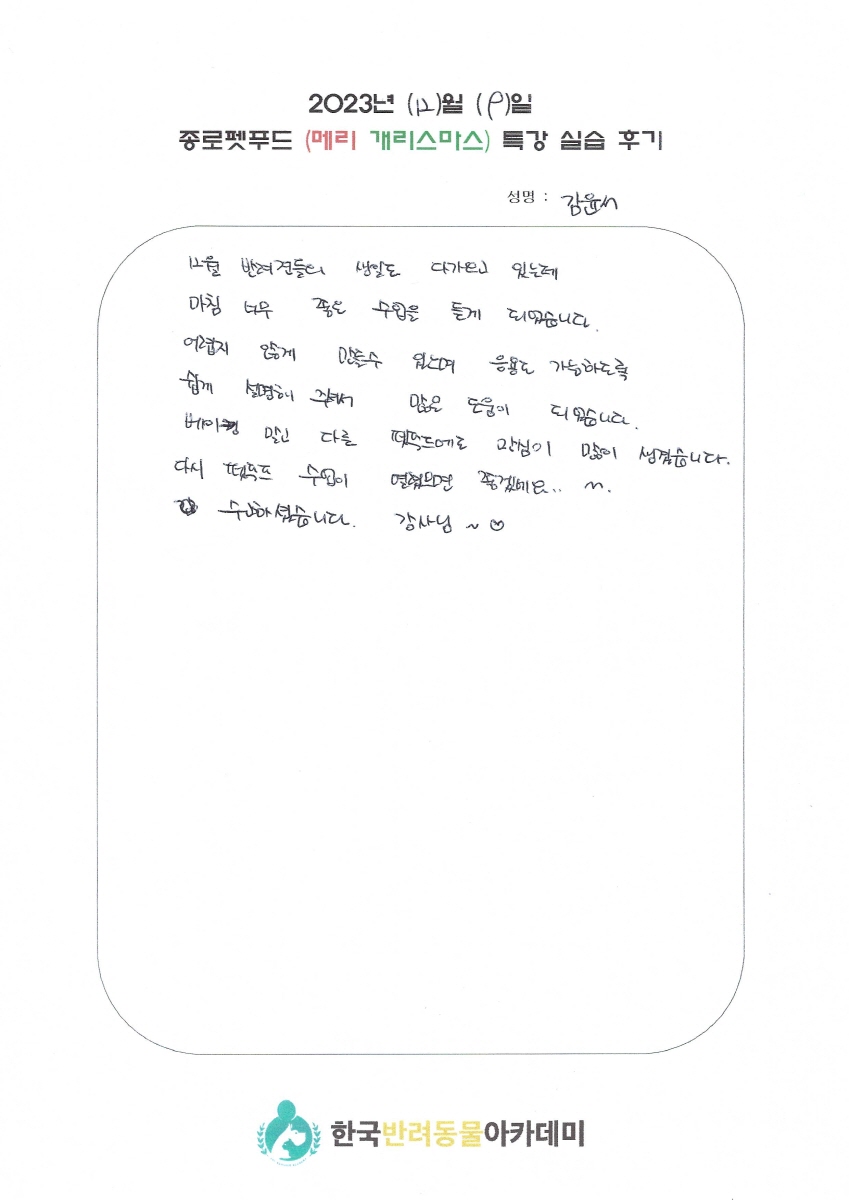 2023년 (12)월 (9)일
종로펫푸드 (메리 개리스마스) 특강 실습 후기
성명 : 김윤서
12월 반려견들의 생일도 다가오고 있는데
마침 너무 좋은 수업을 듣게 되었습니다.
어렵지 않게 만들수 있으며 응용도 가능하도록
쉽게 설명해 주셔서 많은 도움이 되었습니다.
베이킹 말고 다른 펫푸드에도 관심이 많이 생겼습니다.
다시 펫푸드 수업이 열렸으면 좋겠네요.. ^^.
수고하셨습니다. 강사님 ~ ♡
한국반려동물아카데미